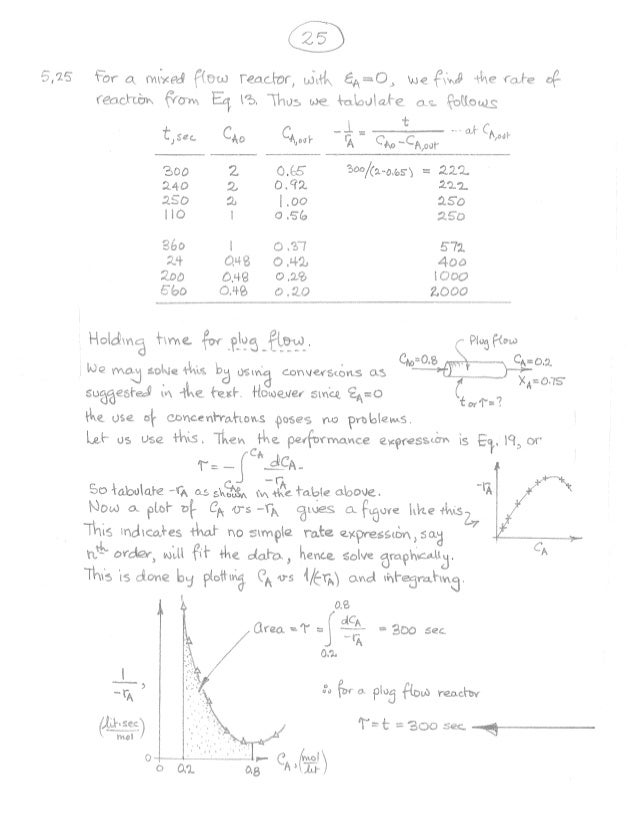 25
5,25 For a mixed flow reactor, with εA=0, we find the rate of
reaction from Eq 13. Thus we tabulate as follows
t, sec CA0 CA,out -1/rA = t/(CA0-CA,out) ... at CA,out
300 2 0.65 300/(2-0.65) = 222
240 2 0.92 222
250 2 1.00 250
110 1 0.56 250
360 1 0.37 572
24 0.48 0.42 400
200 0.48 0.28 1000
560 0.48 0.20 2,000
Holding time for plug flow.
We may solve this by using conversions as
suggested in the text. However since εA=0
the use of concentrations poses no problems.
Plug flow
CA0=0.8
CA=0.2
XA=0.75
t or τ=?
Let us use this. Then the performance expression is Eq. 19, or
τ = -∫CA0^CA dCA/-rA
So tabulate -rA as shown in the table above.
Now a plot of CA vs -rA gives a figure like this
This indicates that no simple rate expression, say
nth order, will fit the data, hence solve graphically.
This is done by plotting CA vs 1/(-rA) and integrating.
-rA
CA
Area = τ = ∫0.2^0.8 dCA/-rA = 300 sec
1/-rA,
(lit·sec/mol)
∴ for a plug flow reactor
τ=t = 300 sec
0
0 0.2 0.8 CA, (mol/lit)